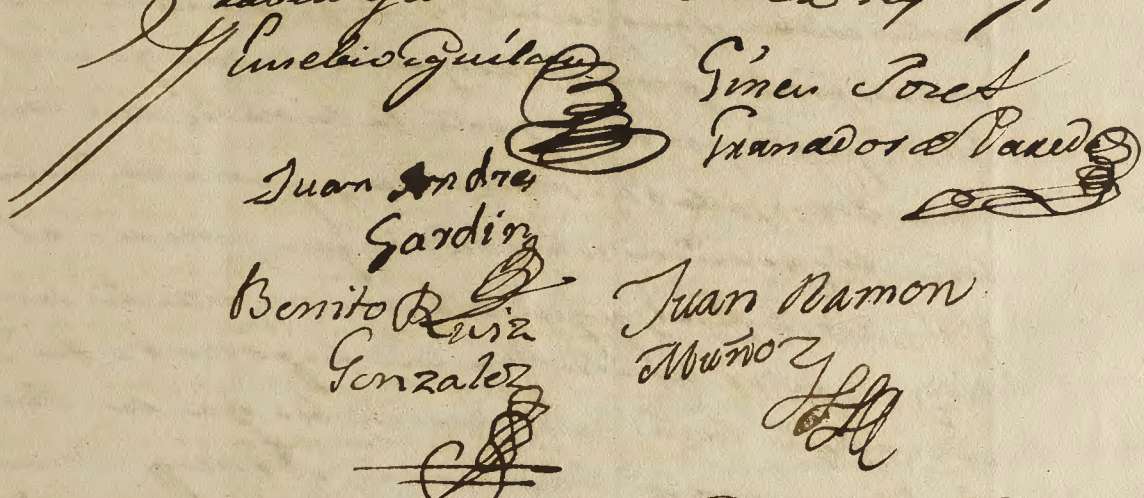 Eusebio Aguilar
Gines Poret
Granados de Paredes
Juan Andres
Gardin
Benito Ruiz
Gonzalez
Juan Ramon
Muñoz